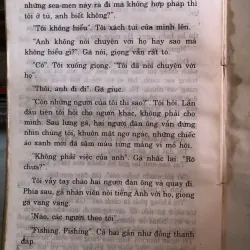 những sea-men này ra đi mà không hợp pháp thì
tôi ở tù, anh biết không?".
"Tôi không hiểu". Tôi xách túi của mình lên.
"Anh không nói chuyện với họ hay sao mà
không hiểu gì?". Gã nói, giọng vẫn rất to.
"Có". Tôi xuống giọng. "Tôi đã nói chuyện với
họ".
"Thôi, anh đi đi". Gã giục.
"Còn những người của tôi thì sao?". Tôi hỏi. Lần
đầu tiên tôi hỏi cho người khác, không phải cho
mình. Sau lưng gã, hai người đàn ông vẫn đứng
nhìn chúng tôi, khuôn mặt ngơ ngác, những chiếc
áo xanh mới đã sậm màu từng mảng vì mồ hôi.
"Không phải việc của anh". Gã nhắc lại. "Rõ
chưa?"
Tôi vẫy tay chào hai người đàn ông và quay đi.
Phía sau, gã nhân viên nói tiếng Anh với họ, giọng
gã vang vang.
"Nào, các người theo tôi".
"Fishing. Fishing". Cả hai gần như đồng thanh
đáp.